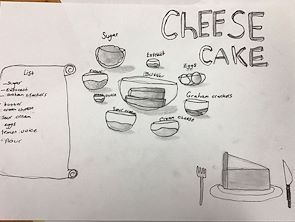 CHEESE
CAKE
Sugar
Extract
Eggs
Butter
Graham crackers
Cream cheese
Sour cream
List
- Sugar
- Extract
- Graham crackers
- butter
- cream cheese
- Sour cream
- eggs
- lemon juice
- flour